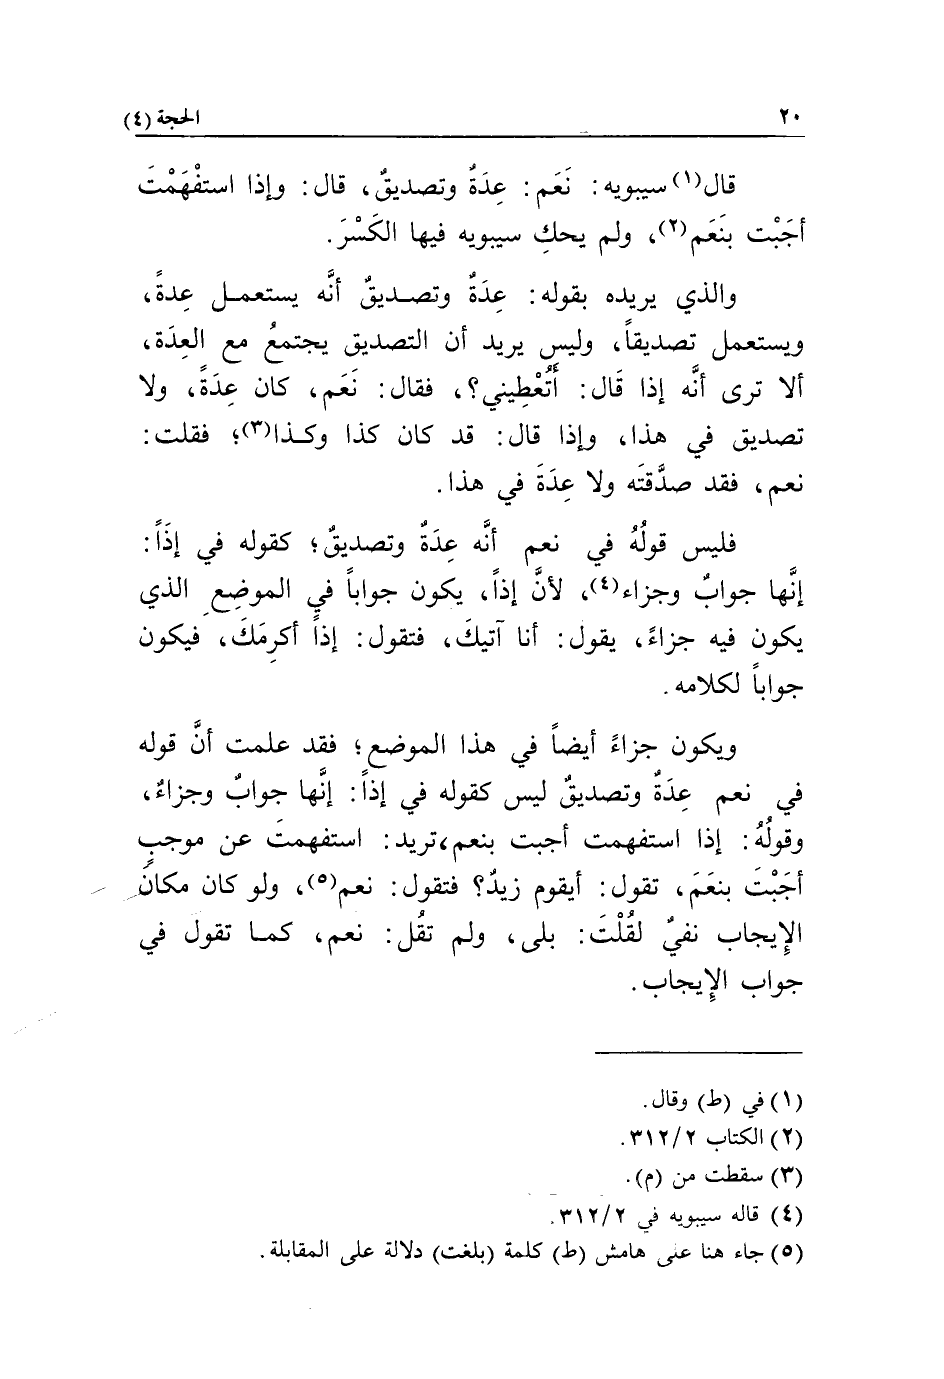 ٢٠ الحجة (٤)
قال(١) سيبويه: نَعَم: عِدَةٌ وتصديقٌ، قال: وإذا استفْهَمْتَ
أجَبْت بنَعَم(٢)، ولم يحكِ سيبويه فيها الكَسْرَ.
والذي يريده بقوله: عِدَةٌ وتصديقٌ أنَّه يستعمل عِدةً،
ويستعمل تصديقاً، وليس يريد أن التصديق يجتمعُ مع العِدَة،
ألا ترى أنَّه إذا قَال: أَتُعْطِيني؟، فقال: نَعَم، كان عِدَةً، ولا
تصديق في هذا، وإذا قال: قد كان كذا وكذا(٣)؛ فقلت:
نعم، فقد صدَّقتَه ولا عِدَةَ في هذا.
فليس قولُهُ في نعم أنَّه عِدَةٌ وتصديقٌ؛ كقوله في إذَاً:
إنَّها جوابٌ وجزاء(٤)، لأنَّ إذاً، يكون جواباً في الموضِعِ الذي
يكون فيه جزاءً، يقول: أنا آتيكَ، فتقول: إذاً أكرِمَكَ، فيكون
جواباً لكلامه.
ويكون جزاءً أيضاً في هذا الموضع؛ فقد علمت أنَّ قوله
في نعم عِدَةٌ وتصديقٌ ليس كقوله في إذاً: إنَّها جوابٌ وجزاءٌ،
وقولُهُ: إذا استفهمت أجبت بنعم،تريد: استفهمتَ عن موجبٍ
أجَبْتَ بنعَمَ، تقول: أيقوم زيدٌ؟ فتقول: نعم(٥)، ولو كان مكانَ
الإِيجاب نفيٌ لقُلْتَ: بلى، ولم تقُل: نعم، كما تقول في
جواب الإِيجاب.
(١) في (ط) وقال.
(٢) الكتاب ٣١٢/٢.
(٣) سقطت من (م).
(٤) قاله سيبويه في ٣١٢/٢.
(٥) جاء هنا على هامش (ط) كلمة (بلغت) دلالة على المقابلة.